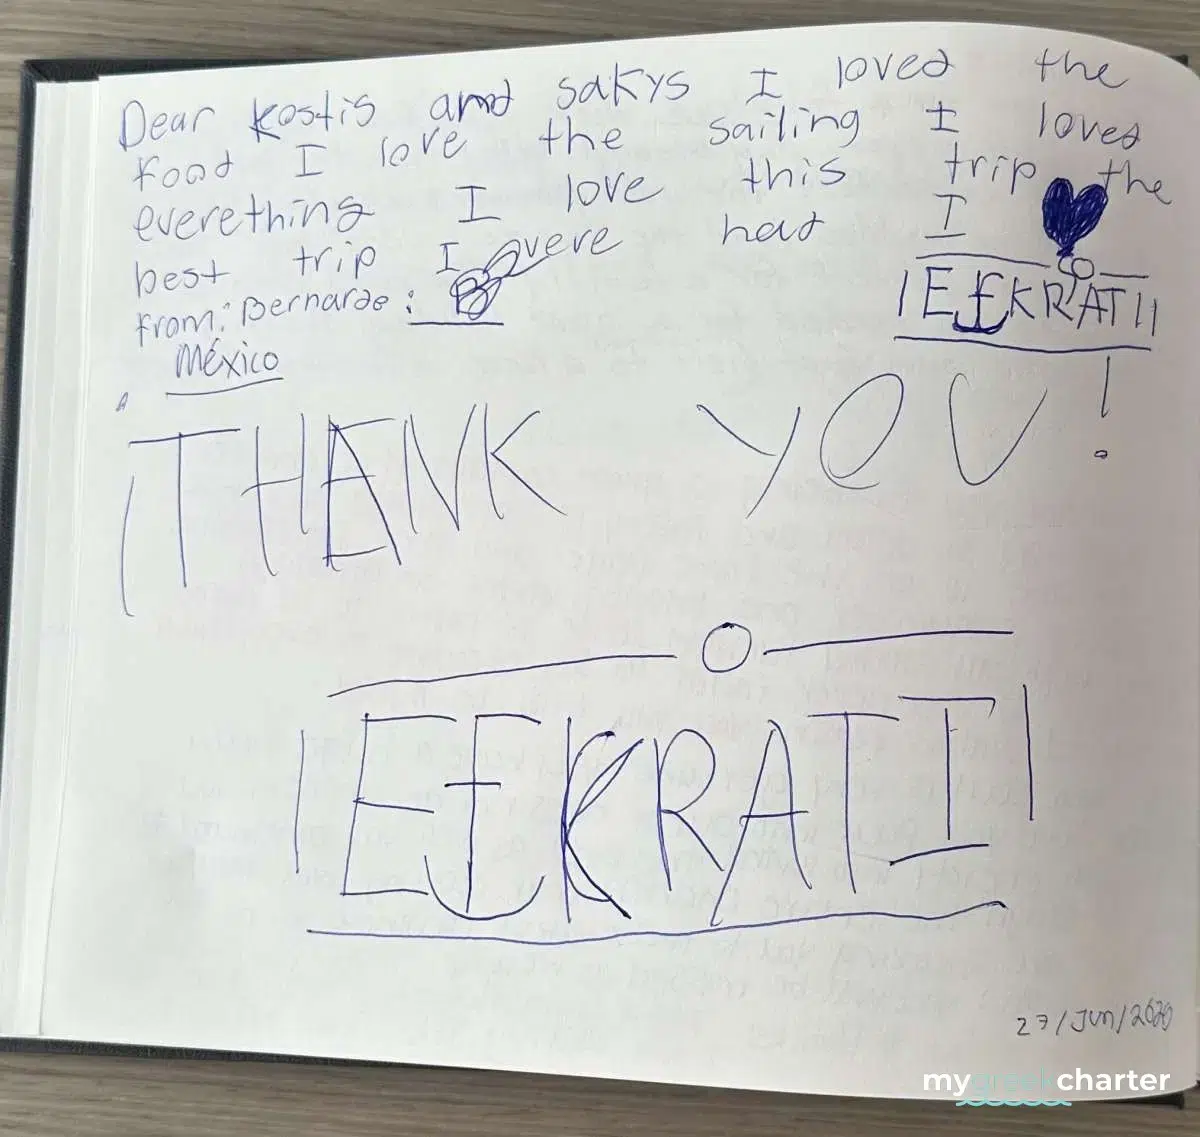 Dear kostis and sakys I loved the
food I love the sailing I loved
everething I love this trip the
best trip I evere had I
from: Bernardo:
México
|EfKRATI|
¡THANK YOU!
|EfKRATI|
27/Jun/2020
mygreekcharter